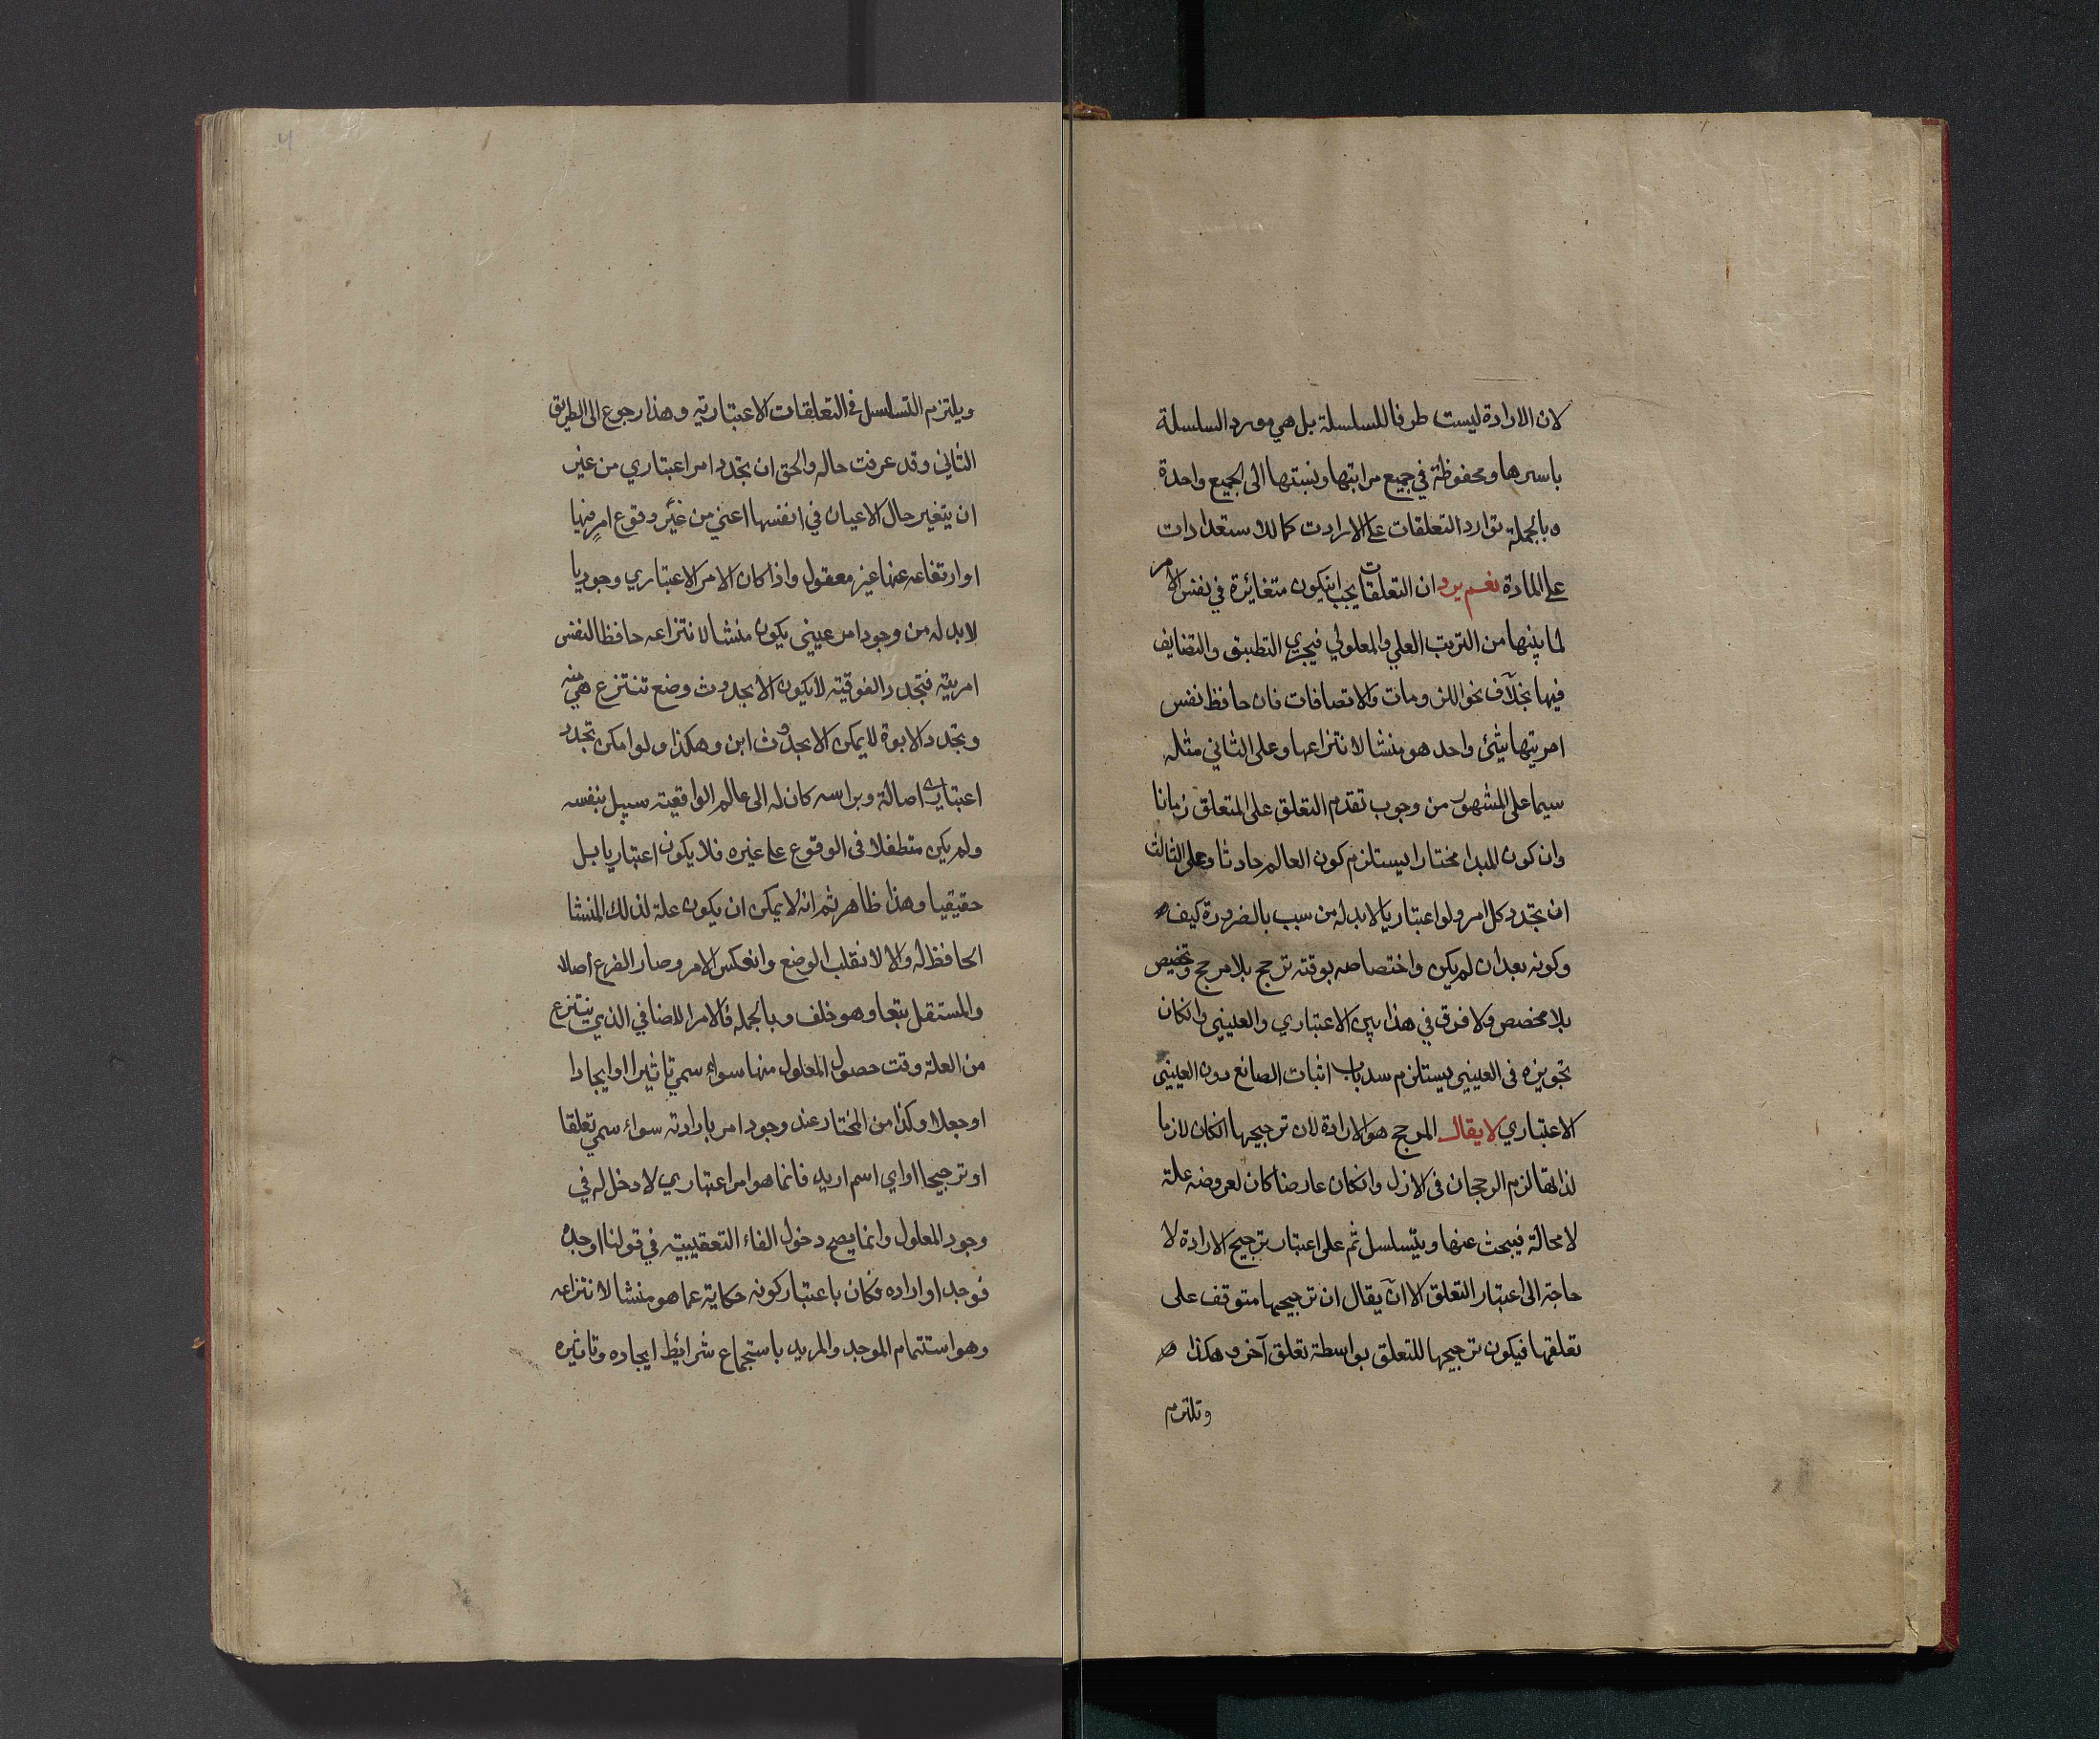 لان الارادة ليست طرفا للسلسلة بل هي مورد السلسلة
باسرها ومحفوظة في جميع مراتبها ونسبتها الى الجميع واحدة
وبالجملة توارد التعلقات على الارادت كما للاستعدادات
على المادة نعم يرد ان التعلقات يجب انيكون متغائرة في نفس الامر
لما بينها من الترتب العلي والمعلولي فيجري التطبيق والتضايف
فيها بخلاف نحو اللزومات والاتصافات فان حافظ نفس
امريتها شئ واحد هو منشا لانتزاعها وعلى الثاني مثله
سيما على المشهور من وجوب تقدم التعلق على المتعلق زمانا
وان كون المبدا مختارا يستلزم كون العالم حادثا وعلى الثالث
ان تجدد كل امر ولو اعتباريا لابد له من سبب بالضرورة كيف
وكونه بعد ان لم يكن واختصاصه بوقته ترجح بلا مرجح وتخصيص
بلا مخصص ولا فرق في هذا بين الاعتباري والعيني وانكان
تجويزه في العيني يستلزم سد باب اثبات الصانع دون العيني
الاعتباري لا يقال المرجح هو الارادة لان ترجيحها انكان لازما
لذاتها لزم الرجحان في الازل وانكان عارضا كان لعروضه علة
لا محالة فيبحث عنها ويتسلسل ثم على اعتبار ترجيح الارادة لا
حاجة الى اعتبار التعلق الا ان يقال ان ترجيحها متوقف على
تعلقها فيكون ترجيحها للتعلق بواسطة تعلق آخر وهكذا
وتلتزم
ويلتزم التسلسل في التعلقات الاعتبارية وهذا رجوع الى الطريق
الثاني وقد عرفت حاله والحق ان تجدد امر اعتباري من غير
ان يتغير حال الاعيان في انفسها اعني من غير وقوع امر فيها
او ارتفاعه عنها غير معقول واذا كان الامر الاعتباري وجوديا
لابد له من وجود امر عيني يكون منشا لانتزاعه حافظا لنفس
امريته فتجدد الفوقية لا يكون الا بحدوث وضع تنتزع هي منه
وتجدد الابوة لا يمكن الا بحدوث ابن وهكذا ولو امكن تجدد
اعتباري اصالة وبراسه كان له الى عالم الواقعية سبيل بنفسه
ولم يكن متطفلا في الوقوع على غيره فلا يكون اعتباريا بل
حقيقيا وهذا ظاهر ثم انه لا يمكن ان يكون علة لذلك المنشا
الحافظ له والا لانقلب الوضع وانعكس الامر وصار الفرع اصلا
والمستقل تبعا وهو خلف وبالجملة فالامر الاضافي الذي ينتزع
من العلة وقت حصول المعلول منها سواء سمي تاثيرا او ايجادا
او جعلا وكذا من المختار عند وجود امر بارادته سواء سمي تعلقا
او ترجيحا او اي اسم اريد فانما هو امر اعتباري لا دخل له في
وجود المعلول وانما يصح دخول الفاء التعقيبية في قولنا اوجده
فوجد او اراده فكان باعتبار كونه حكاية عما هو منشا لانتزاعه
وهو استتمام الموجد والمريد باستجماع شرائط ايجاده وتاثيره